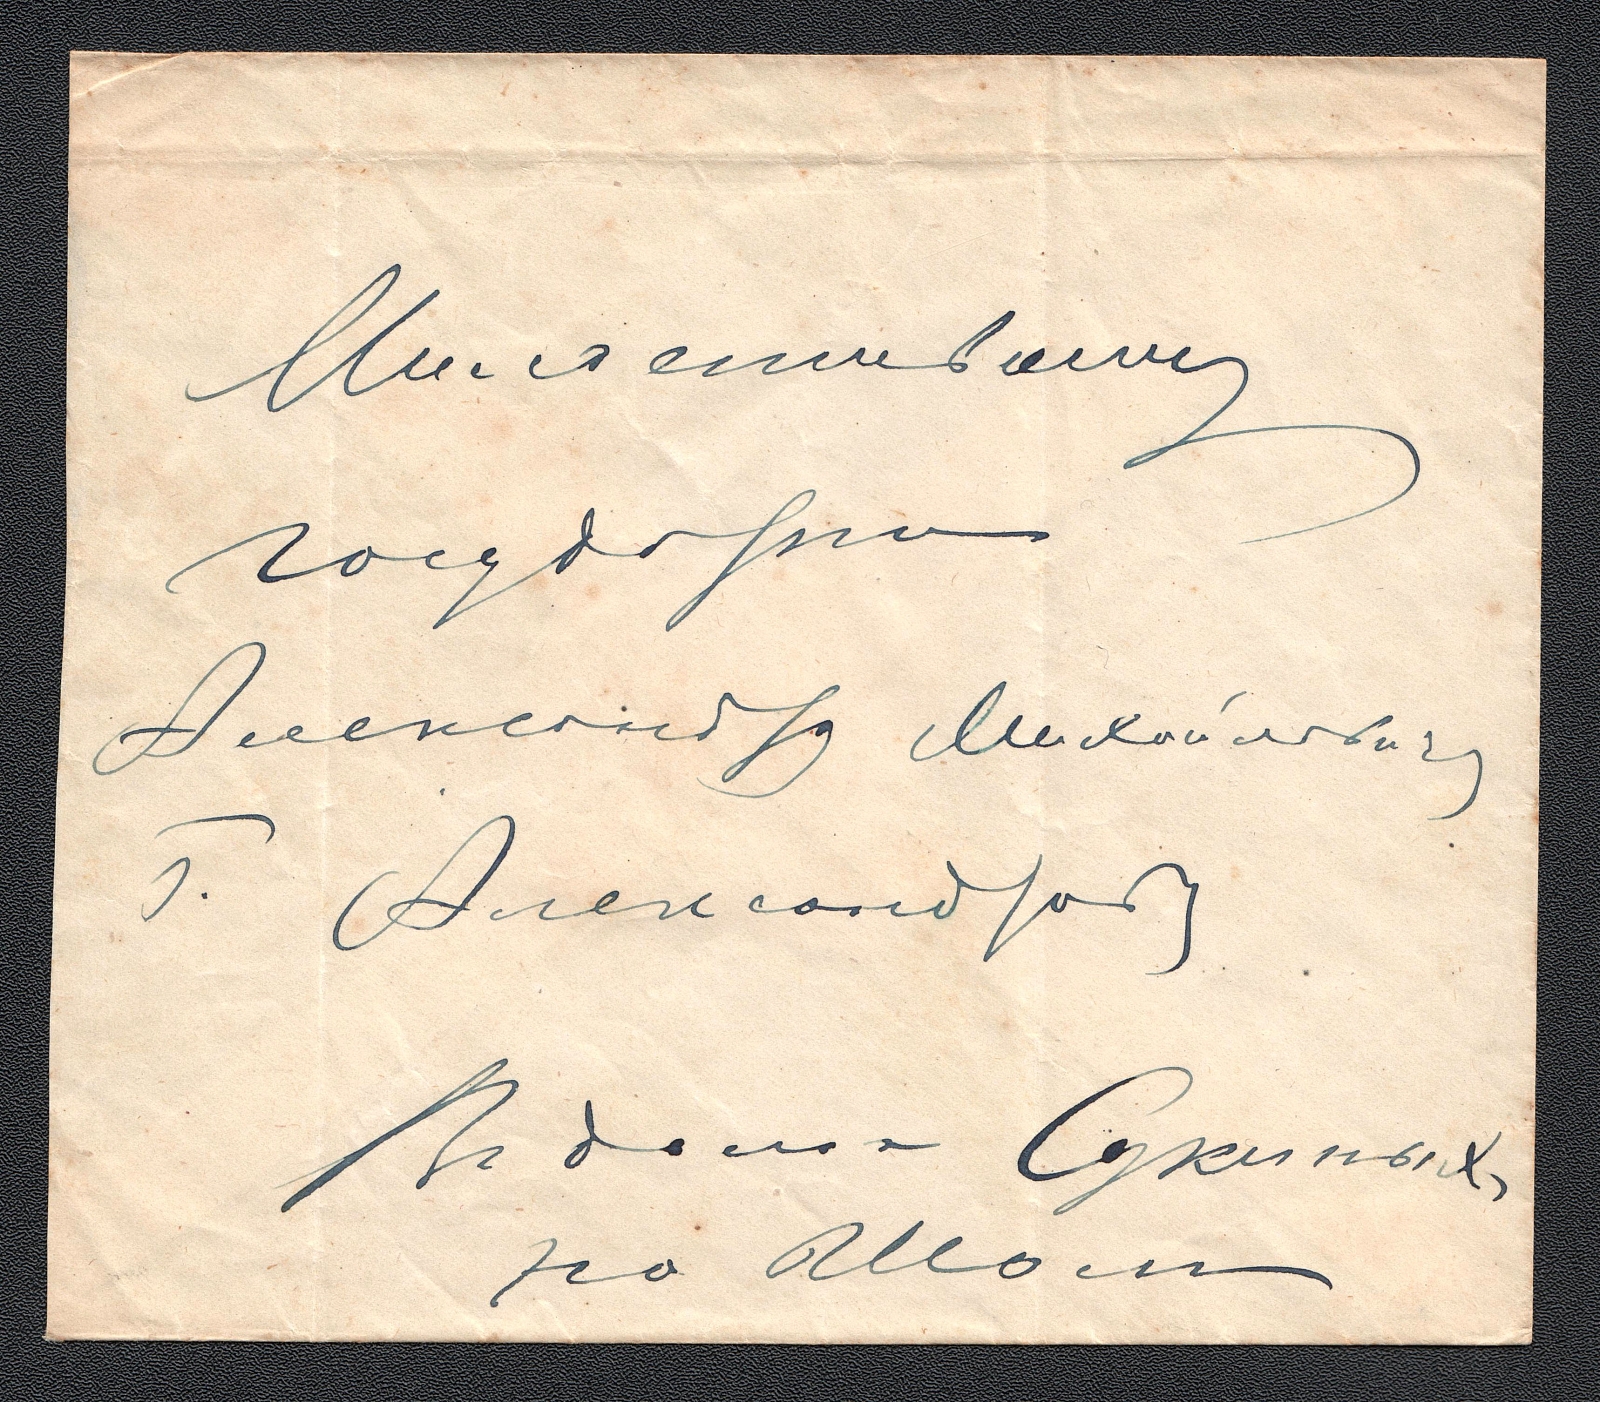 Милостивому
государю
Александру Михайловичу
Г. Александрову
В доме Сукиных,
на